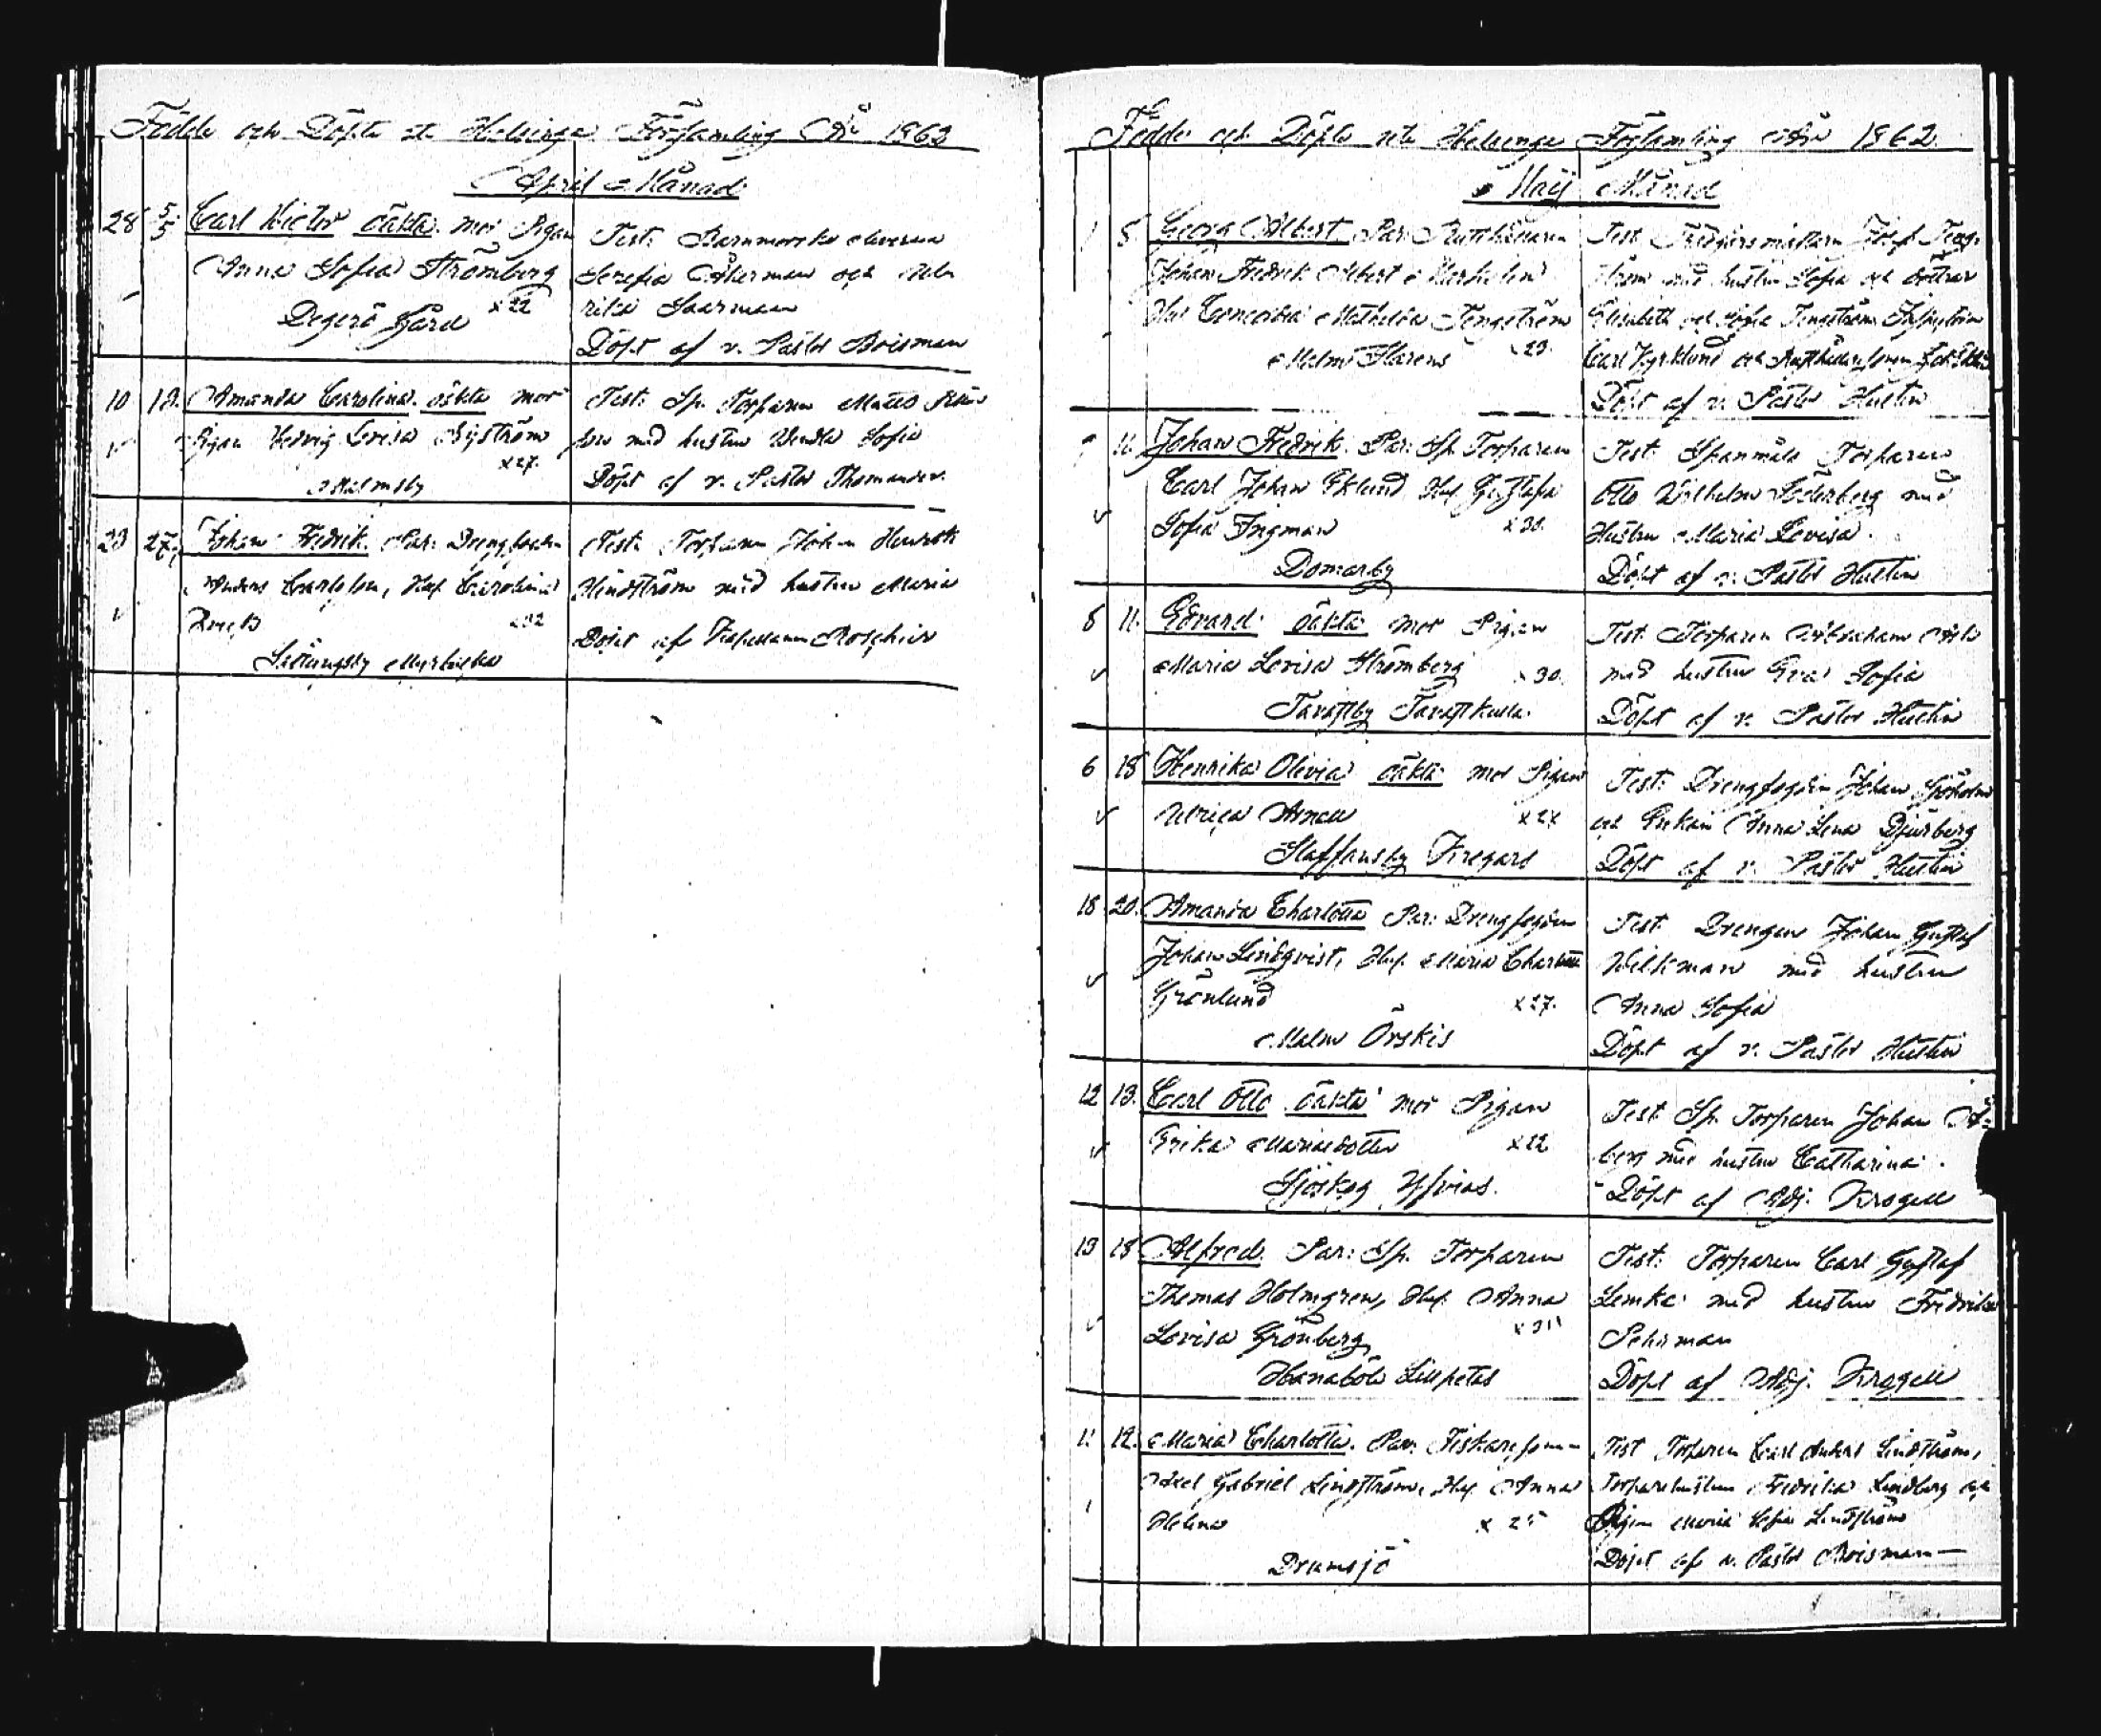 Födde och Döpte uti Helsinge Församling År 1862
April Månad
28 5/5 Carl Victor oäkta. mor Pigan
Anna Sofia Strömberg
x22
Degerö Gård
Test:
Serafia Åkerman och
Döpt af v. Pastor Boisman
10 12. Amanda Carolina. oäkta mor
Pigan Hedvig Lovisa Nyström
x27.
Malmsby
Test: Sp. Torparen Matts
med hustru Wendla Sofia
Döpt af v. Pastor Thomander.
23 27. Johan Fredrik. Par: Drengfogden
Anders Carlsson, Hu. Carolina
x32
Sottungsby
Test: Torparen Johan Henrik
Lindström med hustru Maria
Döpt af Kapellanen Roschier
Födde och Döpte uti Helsinge Församling År 1862.
Maij Månad
1 5. Georg Albert. Par: Rusthållaren
Johan Fredrik Albert
Hu Concordia Mathilda Tengström
Malm Skarens x23.
Test
med hustru Sofia och döttrar
Elisabeth och Sofia Tengström Inspektorn
Carl Kyrklund och
Döpt af v. Pastor Hustin
11. Johan Fredrik. Par: Sp. Torparen
Carl Johan Eklund, Hu. Gustafa
Sofia Ingman x30.
Domarby
Test: Spanmåls Torparen
Otto Wilhelm Söderberg med
Hustru Maria Lovisa.
Döpt af v. Pastor Hustin
8 11. Edvard. oäkta mor Pigan
Maria Lovisa Strömberg x30.
Tavastby Tavastkulla.
Test: Torparen Abraham
med hustru Eva Sofia
Döpt af v. Pastor Hustin
6 18 Henrika Olivia oäkta mor Pigan
Ulrica x27
Staffansby Kregars
Test: Drengfogden Johan Sjöholm
och Enkan Anna Lena Djurberg
Döpt af v. Pastor Hustin
18 20. Amanda Charlotta Par: Drengfogden
Johan Lindqvist, Hu. Maria Charlotta
Grönlund x27.
Malm Örskis
Test. Drengen Johan Gustaf
Wilkman med hustru
Anna Sofia
Döpt af v. Pastor Hustin
12 13. Carl Otto oäkta mor Pigan
Erika Mariasdotter x22
Sjöskog
Test. Sp. Torparen Johan Å-
berg med hustru Catharina.
Döpt af Adj. Krogell
13 18 Alfred. Par: Sp. Torparen
Thomas Holmgren, Hu. Anna
Lovisa Grönberg
Hanaböle Lillpetas
Test: Torparen Carl Gustaf
Lemke med hustru Fredrika
Döpt af Adj. Krogell
11 12. Maria Charlotta. Par: Fiskaresonen
Axel Gabriel Lindström, Hu. Anna
Helena x 25
Drumsjö
Test Torparen Carl Lindström,
Torparehustrun Fredrika Lindberg och
Pigan Maria Sofia Lindström
Döpt af v. Pastor Boisman